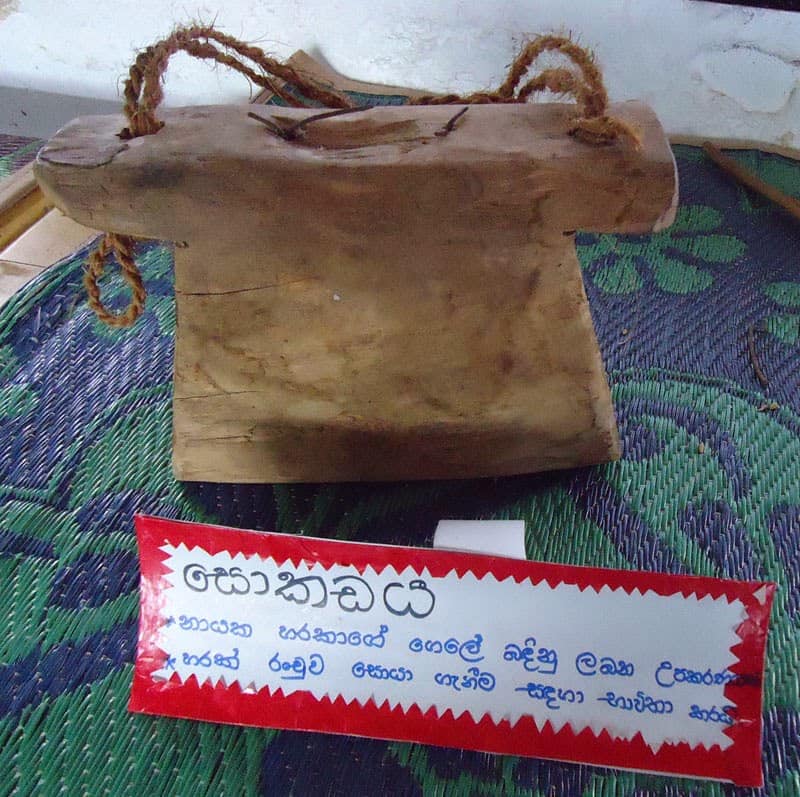 සොකඩය
*නායක හරකාගේ ගෙලේ බඳිනු ලබන උපකරණ
*හරක් රංචුව සොයා ගැනීම සඳහා භාවිතා කරයි